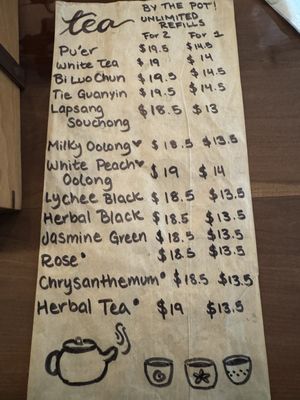 tea
BY THE POT!
UNLIMITED
REFILLS
For 2 For 1
Pu'er $19.5 $14.5
White Tea $19 $14
Bi Luo Chun $19.5 $14.5
Tie Guanyin $19.5 $14.5
Lapsang $18.5 $13
Souchong
Milky Oolong♥ $18.5 $13.5
White Peach♥ $19 $14
Oolong
Lychee Black $18.5 $13.5
Herbal Black $18.5 $13.5
Jasmine Green $18.5 $13.5
Rose* $18.5 $13.5
Chrysanthemum* $18.5 $13.5
Herbal Tea* $19 $13.5